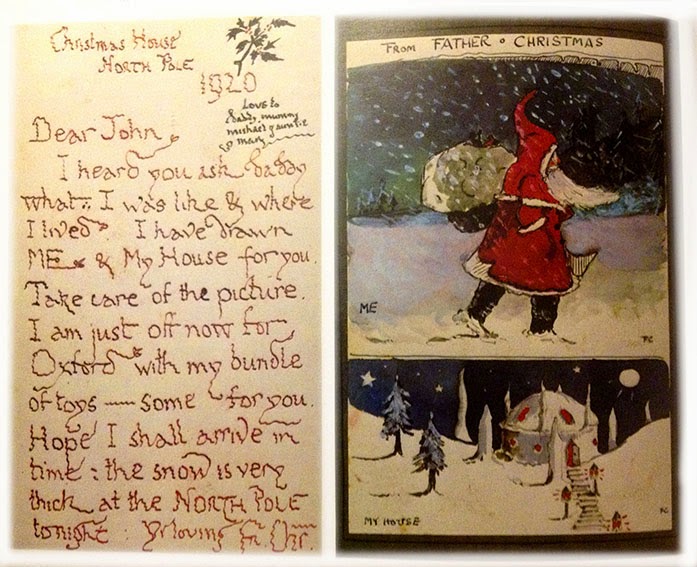 Christmas House
North Pole
1920
Love to
daddy, mummy
michael & auntie
& mary
Dear John
I heard you ask daddy
what I was like & where
I lived. I have drawn
ME & My House for you.
Take care of the picture.
I am just off now for
Oxford with my bundle
of toys — some for you.
Hope I shall arrive in
time: the snow is very
thick at the NORTH POLE
tonight. Yr loving Fr. Chr.
FROM FATHER CHRISTMAS
ME
FC
MY HOUSE
FC